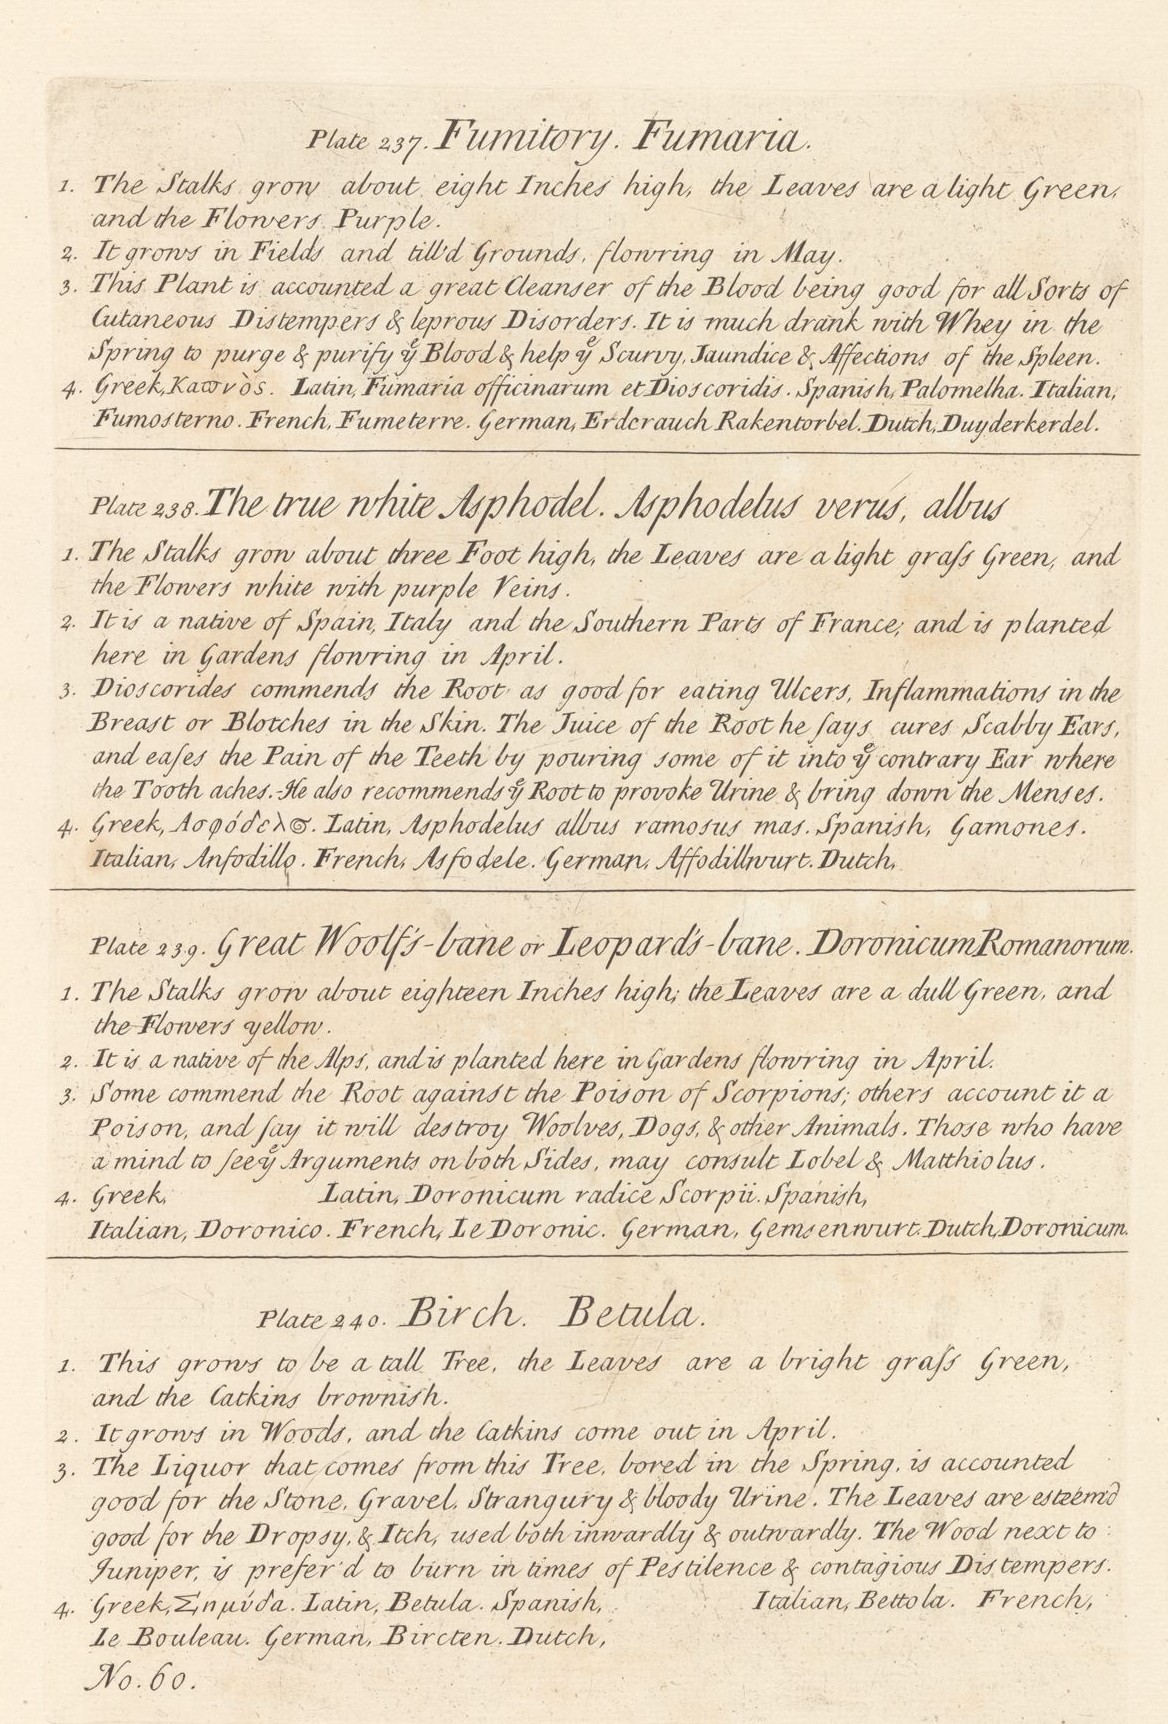 Plate 237. Fumitory. Fumaria.
1. The Stalks grow about eight Inches high, the Leaves are a light Green,
and the Flowers Purple.
2. It grows in Fields and till'd Grounds, flowring in May.
3. This Plant is accounted a great Cleanser of the Blood being good for all Sorts of
Cutaneous Distempers & leprous Disorders. It is much drank with Whey in the
Spring to purge & purify yͤ Blood & help yͤ Scurvy, Jaundice & Affections of the Spleen.
4. Greek, Καπνὸς. Latin, Fumaria officinarum et Dioscoridis. Spanish, Palomelha. Italian,
Fumosterno. French, Fumeterre. German, Erdcrauch Rakentorbel. Dutch, Duyderkerdel.
Plate 238. The true white Asphodel. Asphodelus verus, albus
1. The Stalks grow about three Foot high, the Leaves are a light graſs Green, and
the Flowers white with purple Veins.
2. It is a native of Spain, Italy and the Southern Parts of France; and is planted
here in Gardens flowring in April.
3. Dioscorides commends the Root as good for eating Ulcers, Inflammations in the
Breast or Blotches in the Skin. The Juice of the Root he ſays cures Scabby Ears,
and eaſes the Pain of the Teeth by pouring some of it into yͤ contrary Ear where
the Tooth aches. He also recommends yͤ Root to provoke Urine & bring down the Menses.
4. Greek, Ασφόδελος. Latin, Asphodelus albus ramosus mas. Spanish, Gamones.
Italian, Anfodillo. French, Asfodele. German, Affodillwurt. Dutch,
Plate 239. Great Woolf's-bane or Leopard's-bane. Doronicum Romanorum.
1. The Stalks grow about eighteen Inches high; the Leaves are a dull Green, and
the Flowers yellow.
2. It is a native of the Alps, and is planted here in Gardens flowring in April.
3. Some commend the Root against the Poison of Scorpions; others account it a
Poison, and ſay it will destroy Woolves, Dogs, & other Animals. Those who have
a mind to ſee yͤ Arguments on both Sides, may consult Lobel & Matthiolus.
4. Greek, Latin, Doronicum radice Scorpii. Spanish,
Italian, Doronico. French, Le Doronic. German, Gemsenwurt. Dutch, Doronicum.
Plate 240. Birch. Betula.
1. This grows to be a tall Tree, the Leaves are a bright graſs Green,
and the Catkins brownish.
2. It grows in Woods, and the Catkins come out in April.
3. The Liquor that comes from this Tree, bored in the Spring, is accounted
good for the Stone, Gravel, Strangury & bloody Urine. The Leaves are esteem'd
good for the Dropsy, & Itch, used both inwardly & outwardly. The Wood next to
Juniper, is prefer'd to burn in times of Pestilence & contagious Distempers.
4. Greek, Σημύδα. Latin, Betula. Spanish, Italian, Bettola. French,
Le Bouleau. German, Bircten. Dutch,
No. 60.